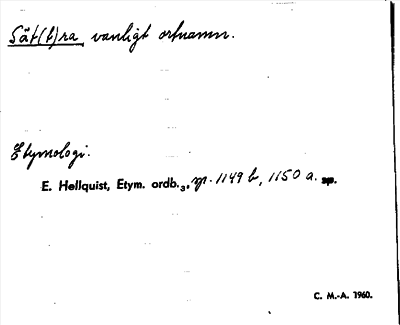 Sät(t)ra, vanligt ortnamn.
Etymologi.
E. Hellquist, Etym. ordb.3, sp. 1149 b, 1150 a. sp.
C. M.-A. 1960.